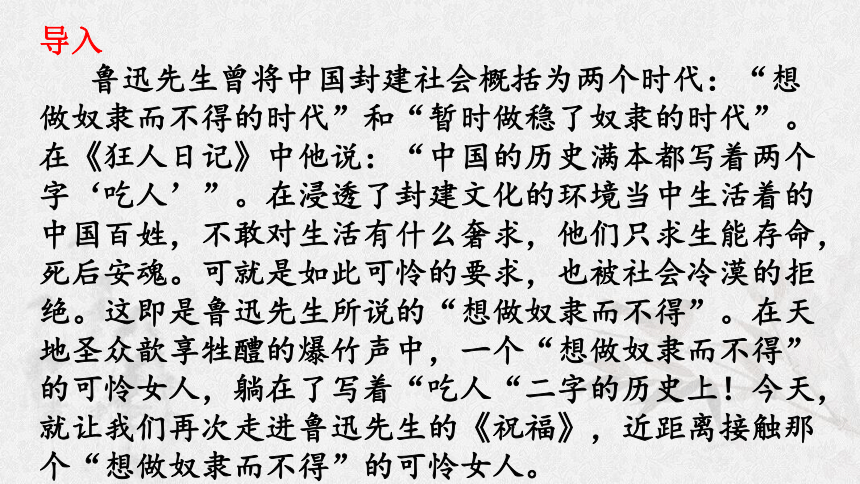 导入
鲁迅先生曾将中国封建社会概括为两个时代：“想
做奴隶而不得的时代”和“暂时做稳了奴隶的时代”。
在《狂人日记》中他说：“中国的历史满本都写着两个
字‘吃人’”。在浸透了封建文化的环境当中生活着的
中国百姓，不敢对生活有什么奢求，他们只求生能存命，
死后安魂。可就是如此可怜的要求，也被社会冷漠的拒
绝。这即是鲁迅先生所说的“想做奴隶而不得”。在天
地圣众歆享牲醴的爆竹声中，一个“想做奴隶而不得”
的可怜女人，躺在了写着“吃人“二字的历史上！今天，
就让我们再次走进鲁迅先生的《祝福》，近距离接触那
个“想做奴隶而不得”的可怜女人。